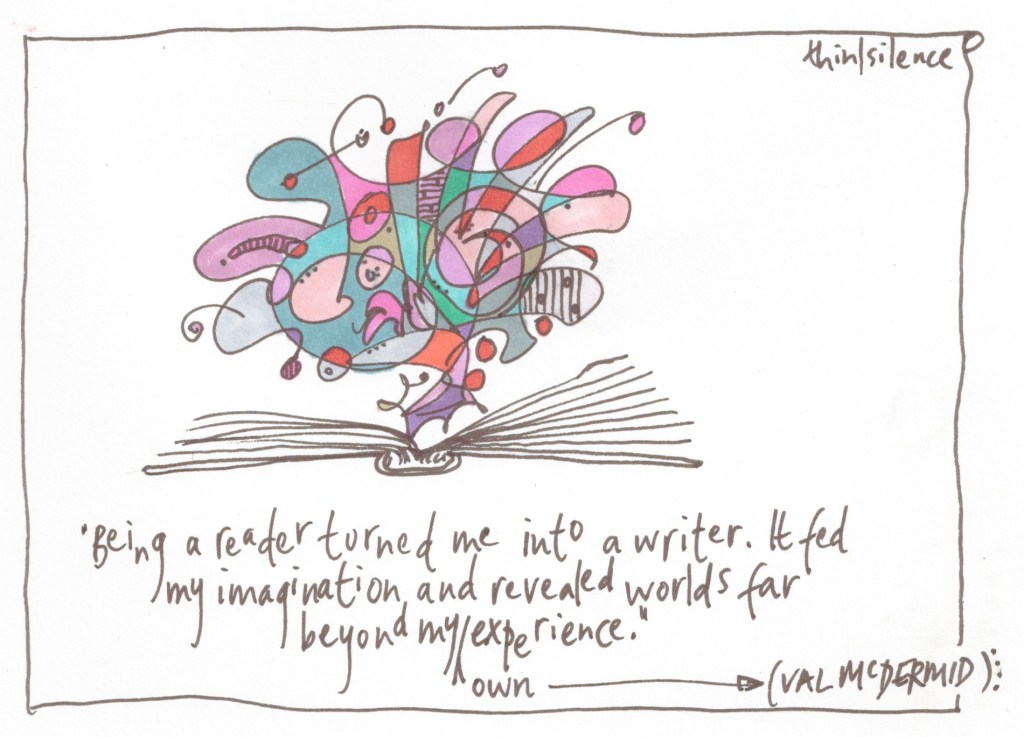 think/silence
"Being a reader turned me into a writer. It fed
my imagination and revealed worlds far
beyond my/experience."
own
(VAL McDERMID)